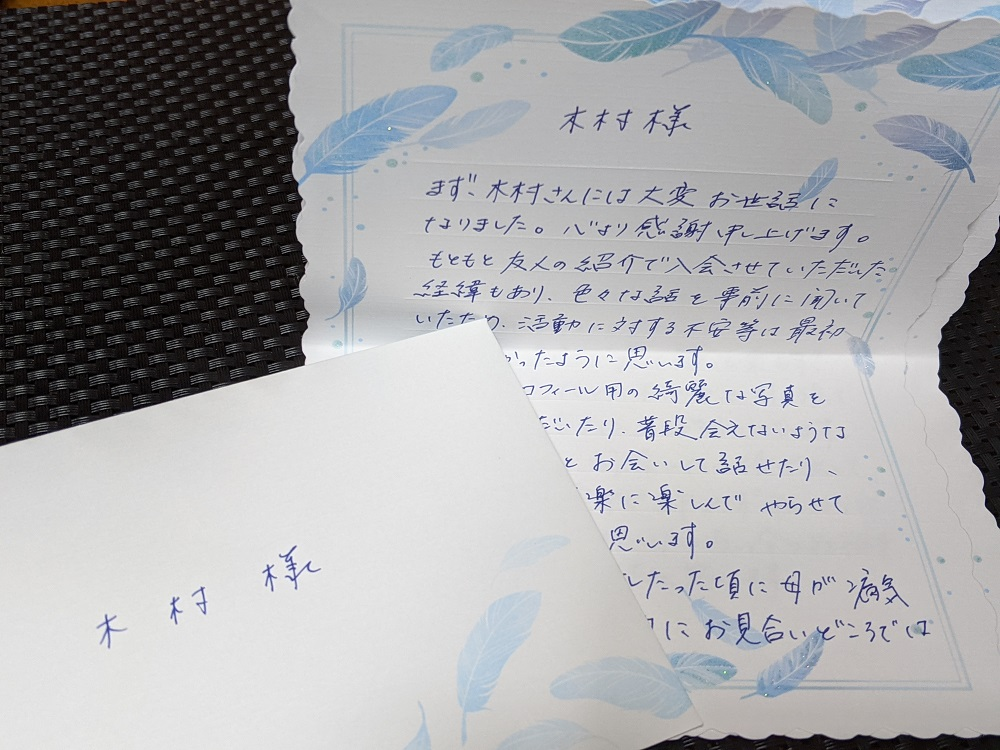 木村様
まず、木村さんには大変お世話に
なりました。心より感謝申し上げます。
もともと友人の紹介で入会させていただいた
経緯もあり、色々な話を事前に聞いて
いたため、活動に対する不安等は最初
ったように思います。
ロフィール用の綺麗な写真を
だいたり、普段会えないような
とお会いして話せたり、
楽に楽しんでやらせて
思います。
したった頃に母が病気
にお見合いどころでは
木村様